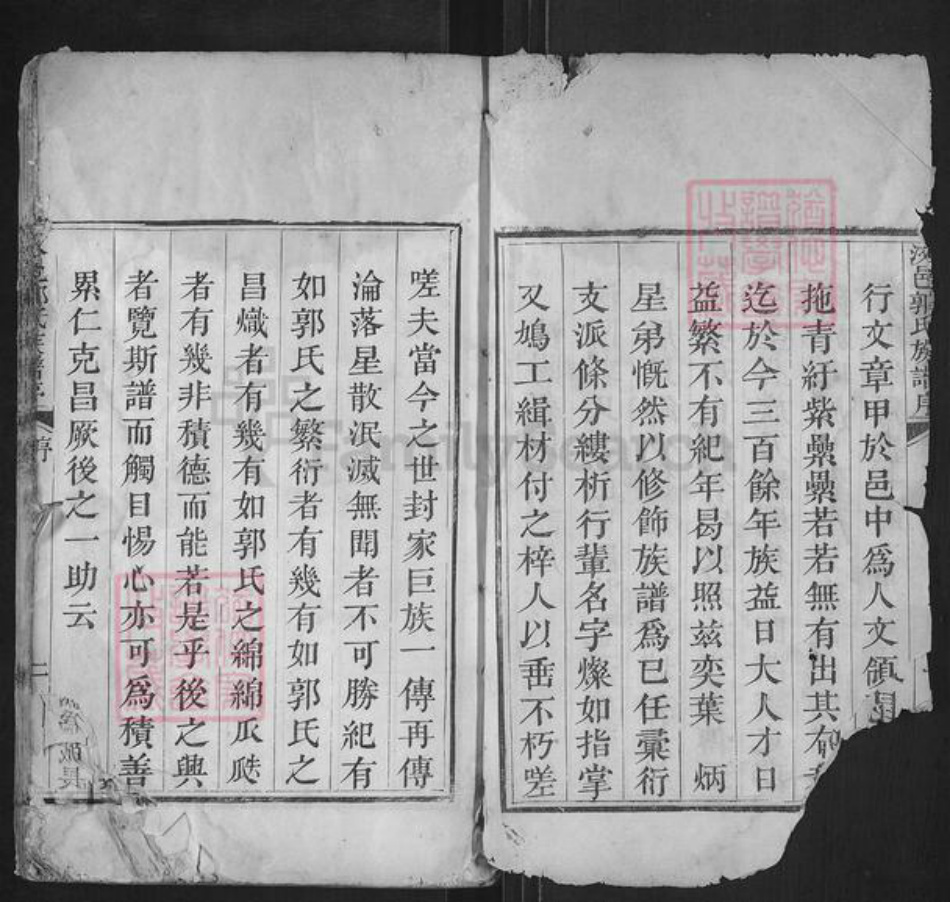 邑郭氏族譜序
行文章甲於邑中爲人文領
拖青紆紫纍纍若若無有出其右
迄於今三百餘年族益日大人才日
益繁不有紀年曷以照茲奕葉 炳
星弟慨然以修飾族譜爲已任彚衍
支派條分縷析行輩名字燦如指掌
又鳩工緝材付之梓人以垂不朽嗟
嗟夫當今之世封家巨族一傳再傳
淪落星散泯滅無聞者不可勝紀有
如郭氏之繁衍者有幾有如郭氏之
昌熾者有幾有如郭氏之綿綿瓜瓞
者有幾非積德而能若是乎後之興
者覽斯譜而觸目惕心亦可爲積善
累仁克昌厥後之一助云
序
二
FamilySearch